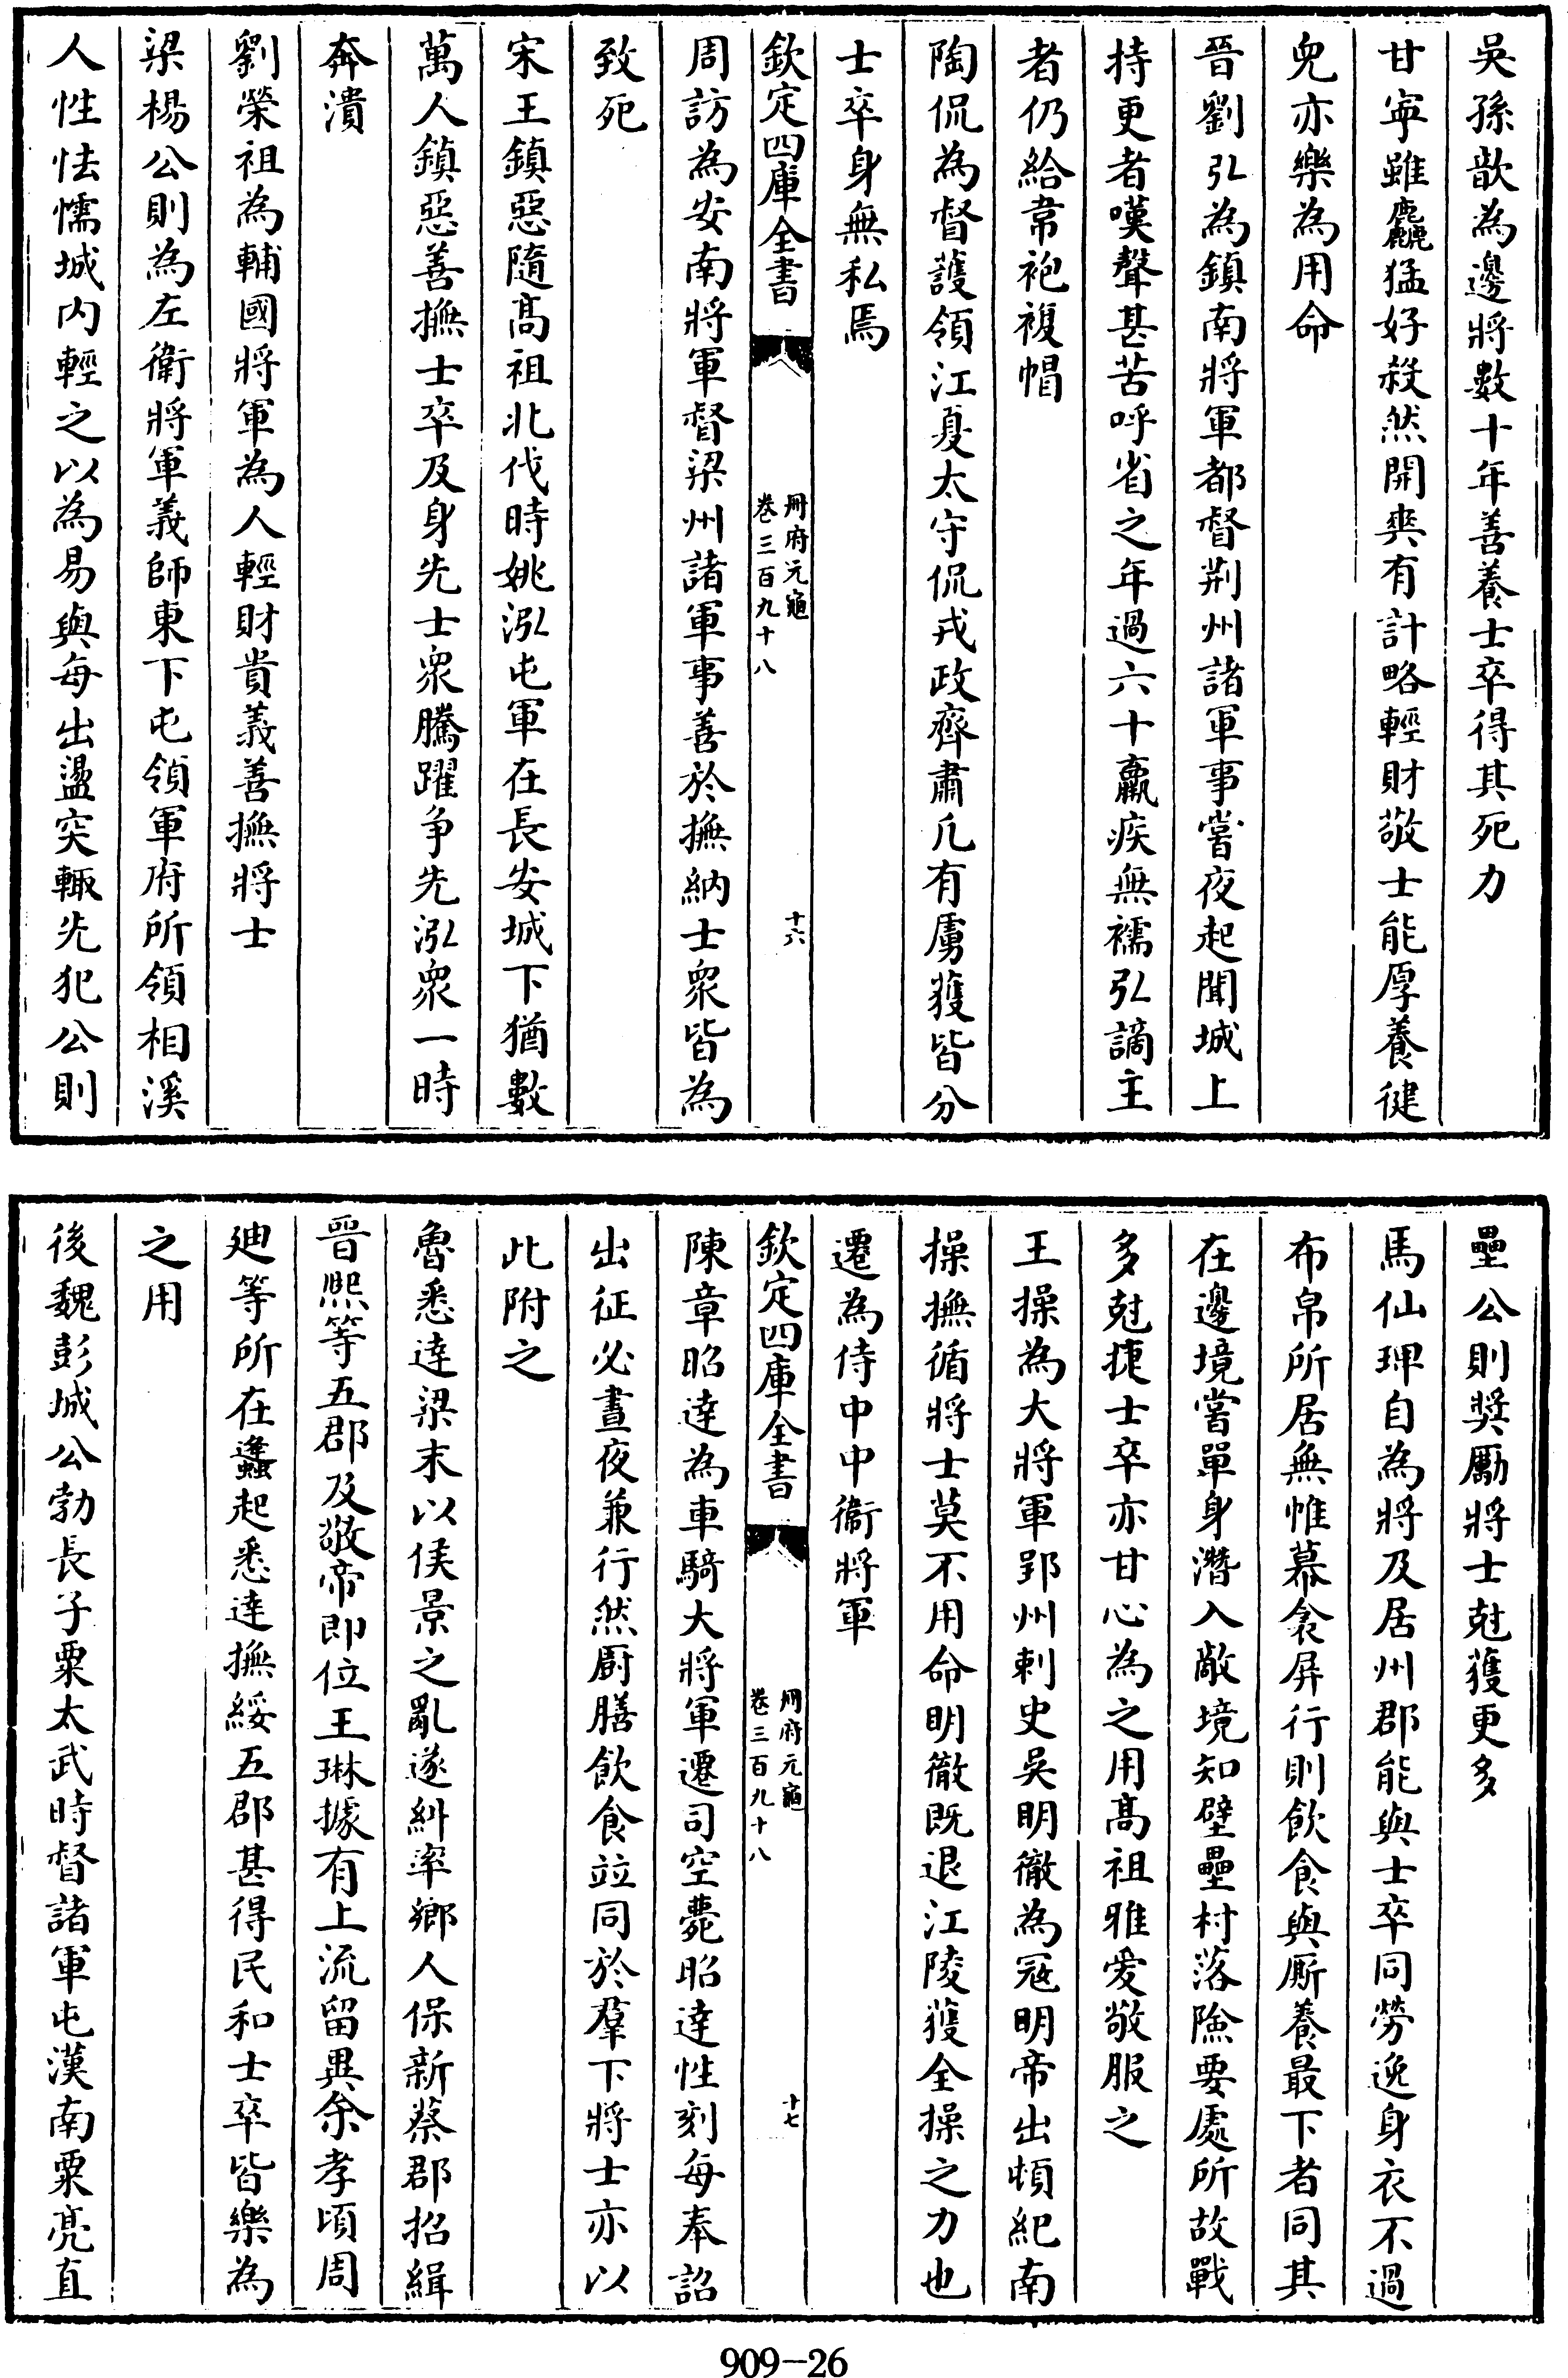 吳孫歆為邊將數十年善養士卒得其死力
甘寧雖麤猛好殺然開爽有計略輕財敬士能厚養健
兒亦樂為用命
晉劉弘為鎮南將軍都督荆州諸軍事嘗夜起聞城上
持更者嘆聲甚苦呼省之年過六十羸疾無襦弘謫主
者仍給韋袍複帽
陶侃為督護領江夏太守侃戎政齊肅凡有虜獲皆分
士卒身無私焉
欽定四庫全書
冊府元龜
卷三百九十八
十六
周訪為安南將軍督梁州諸軍事善於撫納士衆皆為
致死
宋王鎮惡隨髙祖北伐時姚泓屯軍在長安城下猶數
萬人鎮惡善撫士卒及身先士衆騰躍争先泓衆一時
奔潰
劉榮祖為輔國將軍為人輕財貴義善撫將士
梁楊公則為左衛將軍義師東下屯領軍府所領相溪
人性怯懦城内輕之以為易與每出盪突輒先犯公則
壘公則奨勵將士尅獲更多
馬仙琕自為將及居州郡能與士卒同勞逸身衣不過
布帛所居無帷幕衾屏行則飲食與厮養最下者同其
在邊境嘗單身潛入敵境知壁壘村落險要處所故戰
多尅捷士卒亦甘心為之用髙祖雅愛敬服之
王操為大將軍郢州刺史吳明徹為冦明帝出頓紀南
操撫循將士莫不用命明徹既退江陵獲全操之力也
遷為侍中中衞將軍
欽定四庫全書
冊府元龜
卷三百九十八
十七
陳章昭達為車騎大將軍遷司空薨昭達性刻每奉詔
出征必晝夜兼行然厨膳飲食竝同於羣下將士亦以
此附之
魯悉達梁末以侯景之亂遂糾率鄉人保新蔡郡招緝
晉熙等五郡及敬帝即位王琳據有上流留異余孝頃周
廸等所在蠭起悉達撫綏五郡甚得民和士卒皆樂為
之用
後魏彭城公勃長子粟太武時督諸軍屯漢南粟亮直
909-26